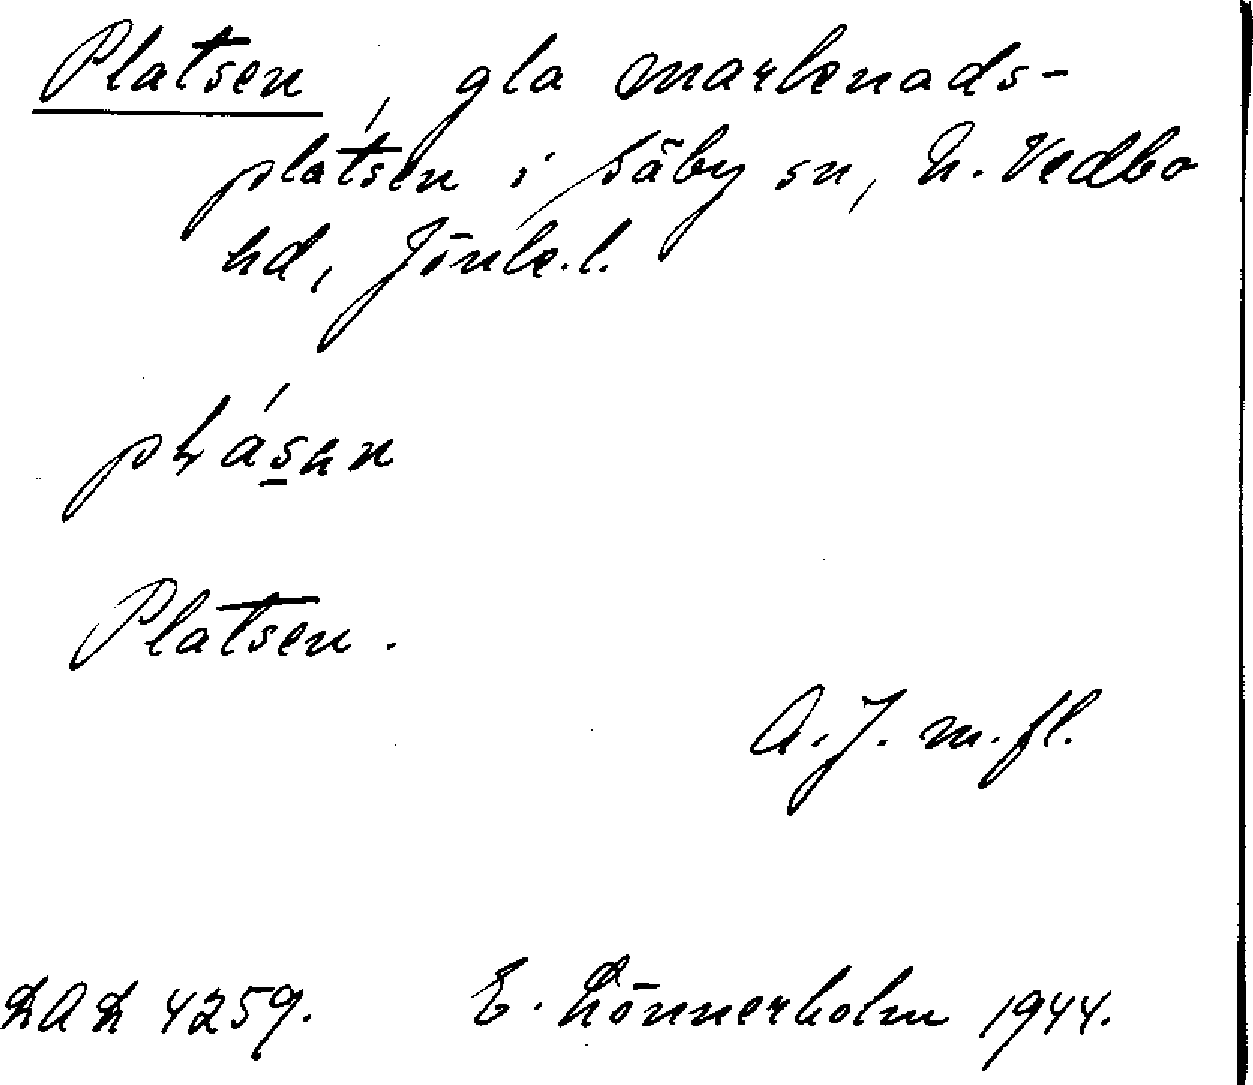 Platsen, gla marknads-
platsen i Säby sn, N. Vedbo
hd, Jönk.l.
Platsen.
A.J. m.fl.
DAL 4259. E. Lönnerholm 1944.